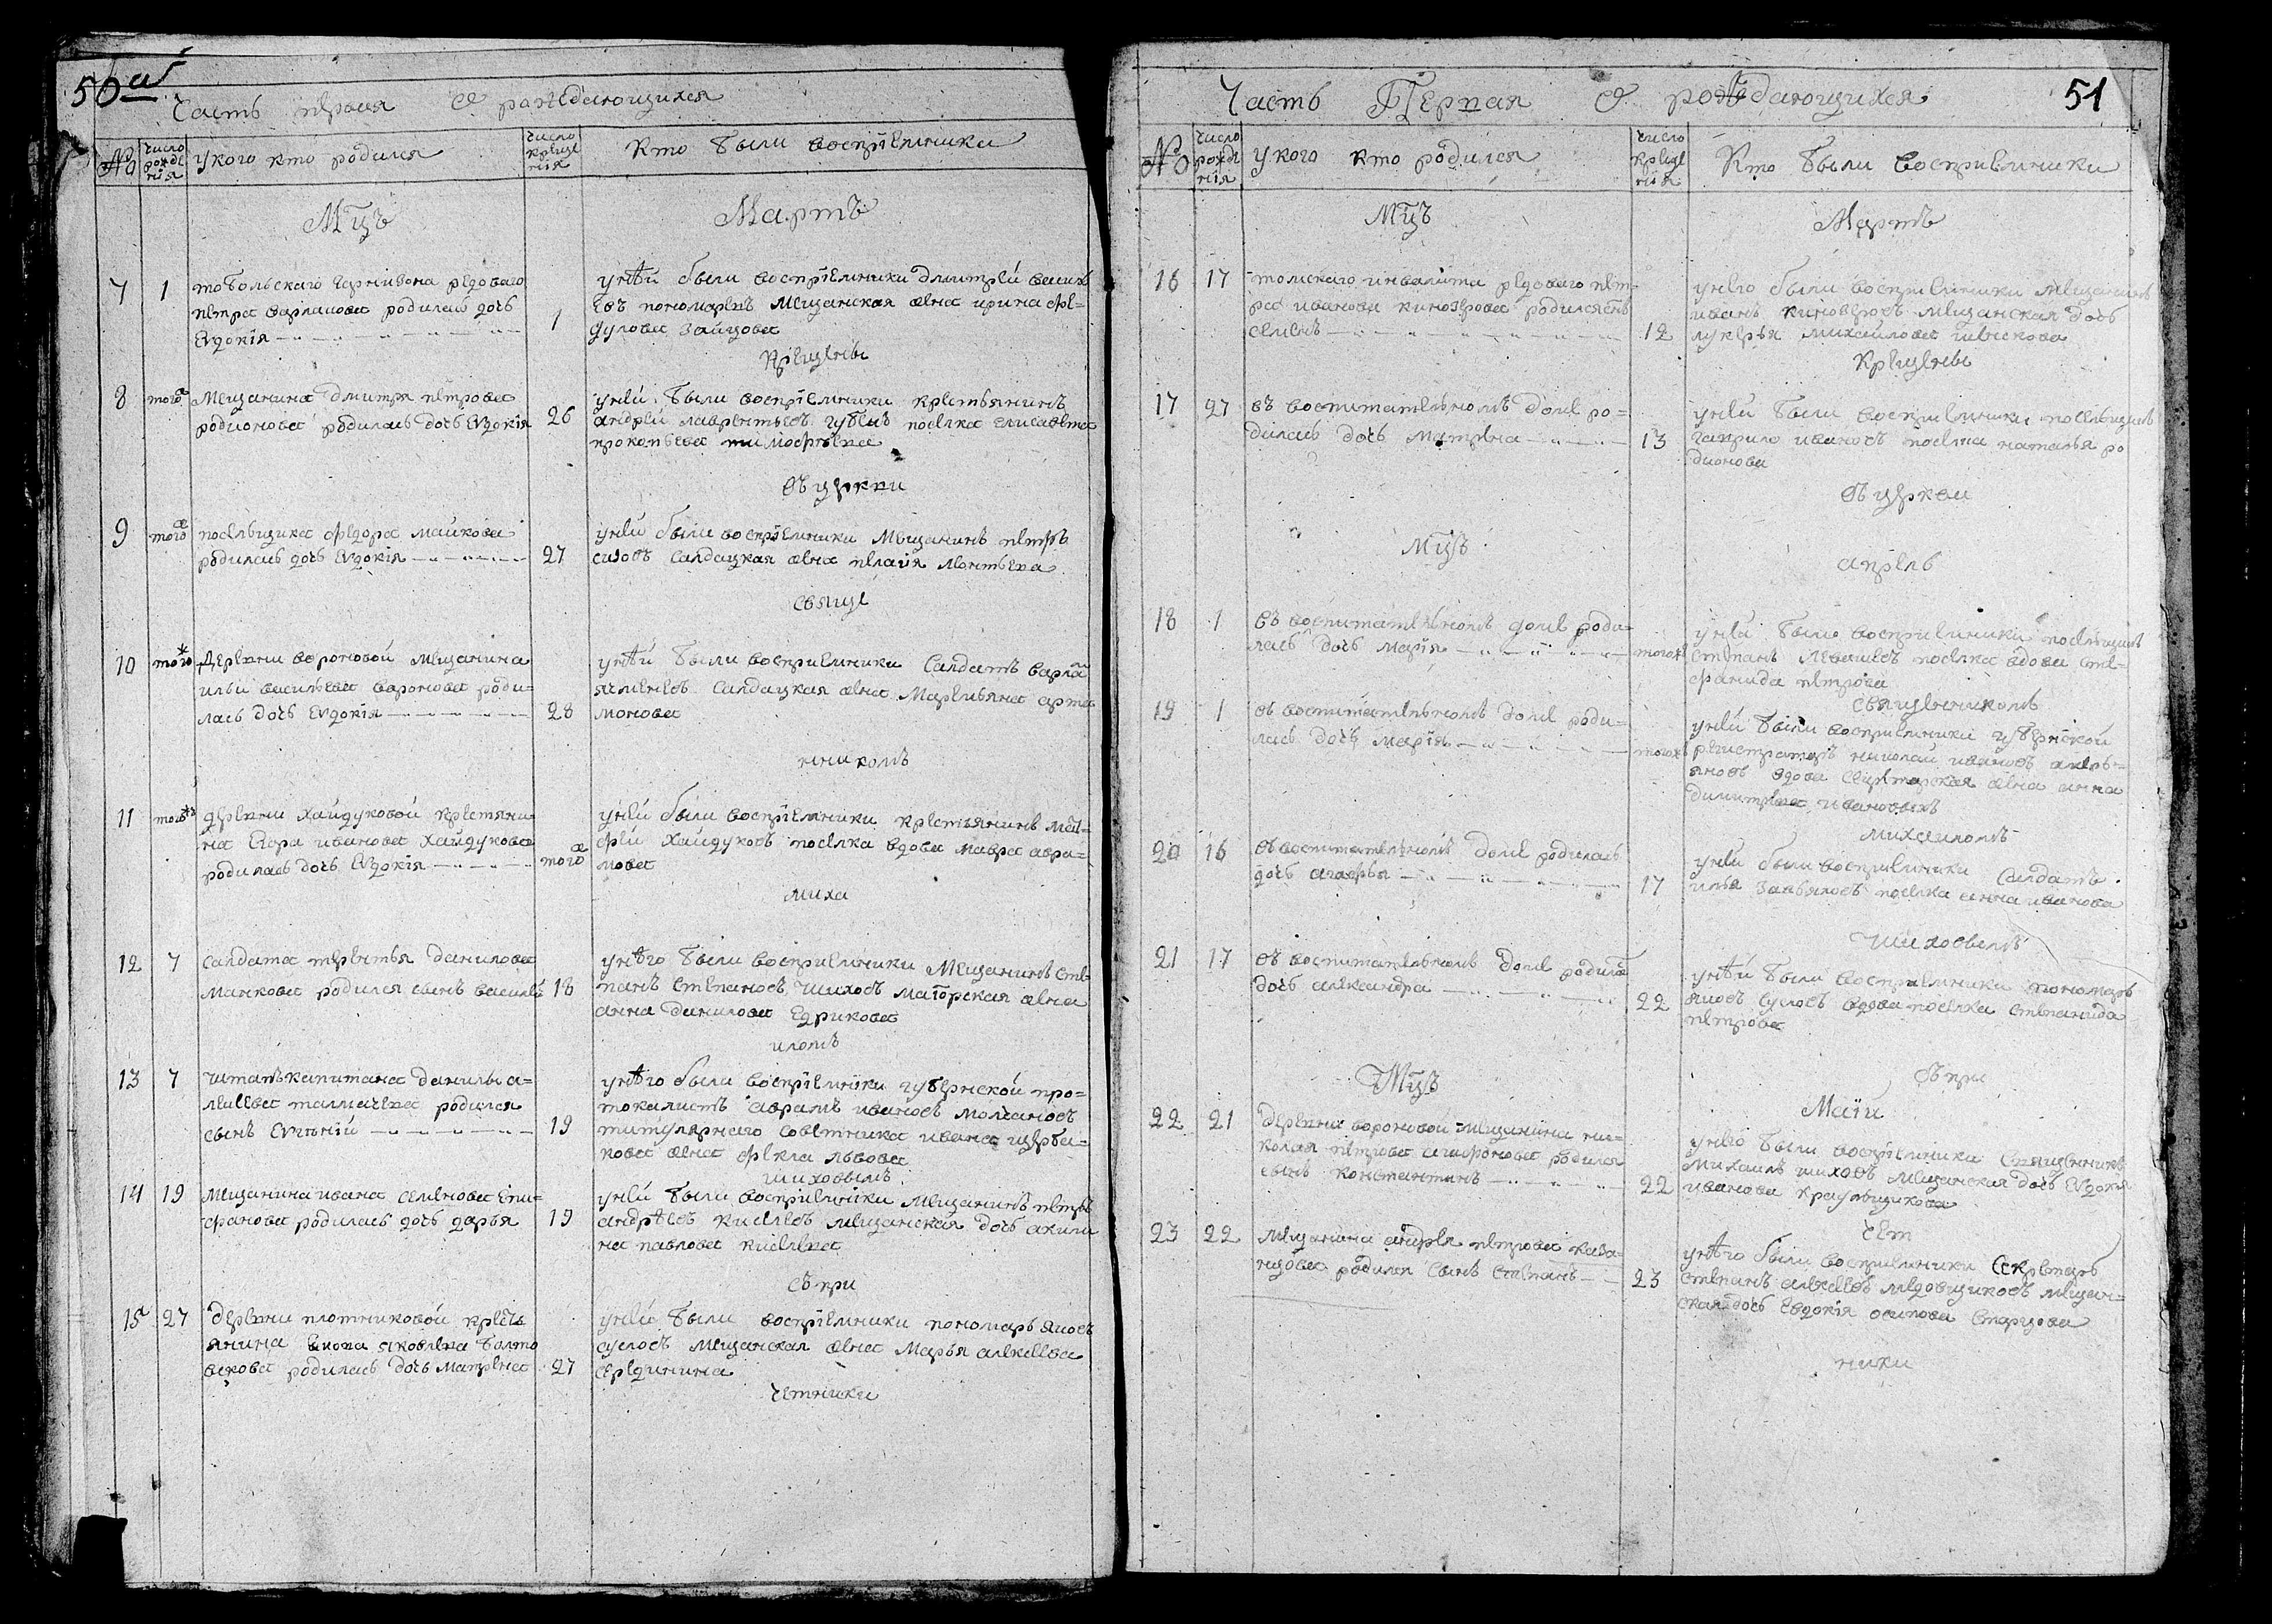 50 а
Часть перьвая О раждающихся
№
число рожде нїя
у кого кто родился
число креще нїя
Кто были воспрїемники
Мцъ
Мартъ
7
1
тобольскаго гарнизона редоваго
петра варламова родилась дочь
Еvдокія
1
у неѣй были воспрїемники дмитрей василь
евъ пономаревъ мещанская жена ирина фе-
дулова зайцова
крещены
8
того ж
мещанина дмитрея петрова
родионова родилась дочь Еvдокія
26
у ней были воспрїемники крестьянинъ
андрей лаврентьевъ губинъ поселка елисавета
прокопьева тимофѣева
въ церкви
9
того ж
посельщика федора майкова
родилась дочь Еvдокія
27
у ней были воспрїемники мещанинъ петръ
сизовъ салдацкая жена пелагія леонтьева
свяще
10
того ж
деревни вороновой мещанина
ильи васильева воронова роди-
лась дочь Еvдокія
28
у нѣй были восприемники салдатъ варла
ячменевъ салдацкая жена маремьяна арта
монова
нникомъ
11
того ж
деревни хайдуковой крестяни
на егора иванова хайдукова
родилась дочь Еvдокія
того ж
у ней были воспрїемники крестьянинъ мат-
фей хайдуковъ поселка вдова мавра авра-
мова
миха
12
7
салдата терентья данилова
манкова родился сынъ василей
18
у нѣго были восприемники мещанинъ сте-
панъ степановъ шиховъ маїорская жена
анна данилова едрикова
иломъ
13
7
штапъ капитана данилы а-
лексеева талмачева родился
сынъ Еvгеній
19
у нѣго были воспрїемники губернской про-
токалистъ аврамъ ивановъ молчановъ
титулярнаго советника ивана щерба-
кова жена фекла львова
шиховымъ
14
19
мещанина ивана семенова епи-
фанова родилась дочь дарья
19
у ней были восприемники мещанинъ петръ
андрѣевъ киселевъ мещанская дочь акили
на павлова киселева
съ при
15
27
деревни плотниковой кресть
янина яковлева болто
вскова родилась дочь матрена
27
у ней были воспрїемники пономарь яковъ
сусловъ мещанская жена марья алексеева
середнинина
четники
51
Часть Первая О рождающихся
№
число рожде нїя
у кого кто родился
число креще нїя
Кто были восприемники
Мцъ
Мартъ
16
17
томскаго инвалита редоваго пет-
ра иванова кинозерова родился сынъ
семенъ
12
у него были восприемники мещанинъ
иванъ киноверовъ мещанская дочь
лукерья михайлова шевнскова
крещены
17
27
въ воспитательномъ доме ро-
дилась дочь матрена
13
у ней были восприемники посельщикъ
гаврило ивановъ поселка наталья ро
дионова
въ церкви
Мцъ
апрель
18
1
въ воспитательномъ доме роди-
лась дочь марїя
того ж
у ней были восприемники посельщикъ
степанъ левашевъ поселка вдова сте-
фанида петрова
священникомъ
19
1
въ воспитательномъ доме роди-
лась дочь марїя
того ж
у ней были восприемники губернской
регистраторъ николай ивановъ
вдова секретарская жена анна
димитрева ивановыхъ
михаиломъ
20
16
въ воспитательномъ доме родилась
дочь агафья
17
у ней были восприемники салдатъ
илья завьяловъ поселка анна иванова
шиховымъ
21
17
въ воспитательномъ доме родилась
дочь александра
22
у нѣй были восприемники пономарь
яковъ сусловъ вдова поселка степанида
петрова
съ при
Мцъ
Маїи
22
21
деревни вороновой мещанина ни-
колая петрова агафонова родился
сынъ константинъ
22
у него были воспрїемники священникъ
михаилъ шиховъ мещанская дочь Еvдокія
иванова краульщикова
чет
23
22
мещанина андрея петрова кава-
нцова родился сынъ степанъ
23
у нѣго были восприемники секретарь
степанъ алексеевъ медовщиковъ мещан-
ская дочь евдокія осипова старцова
ники